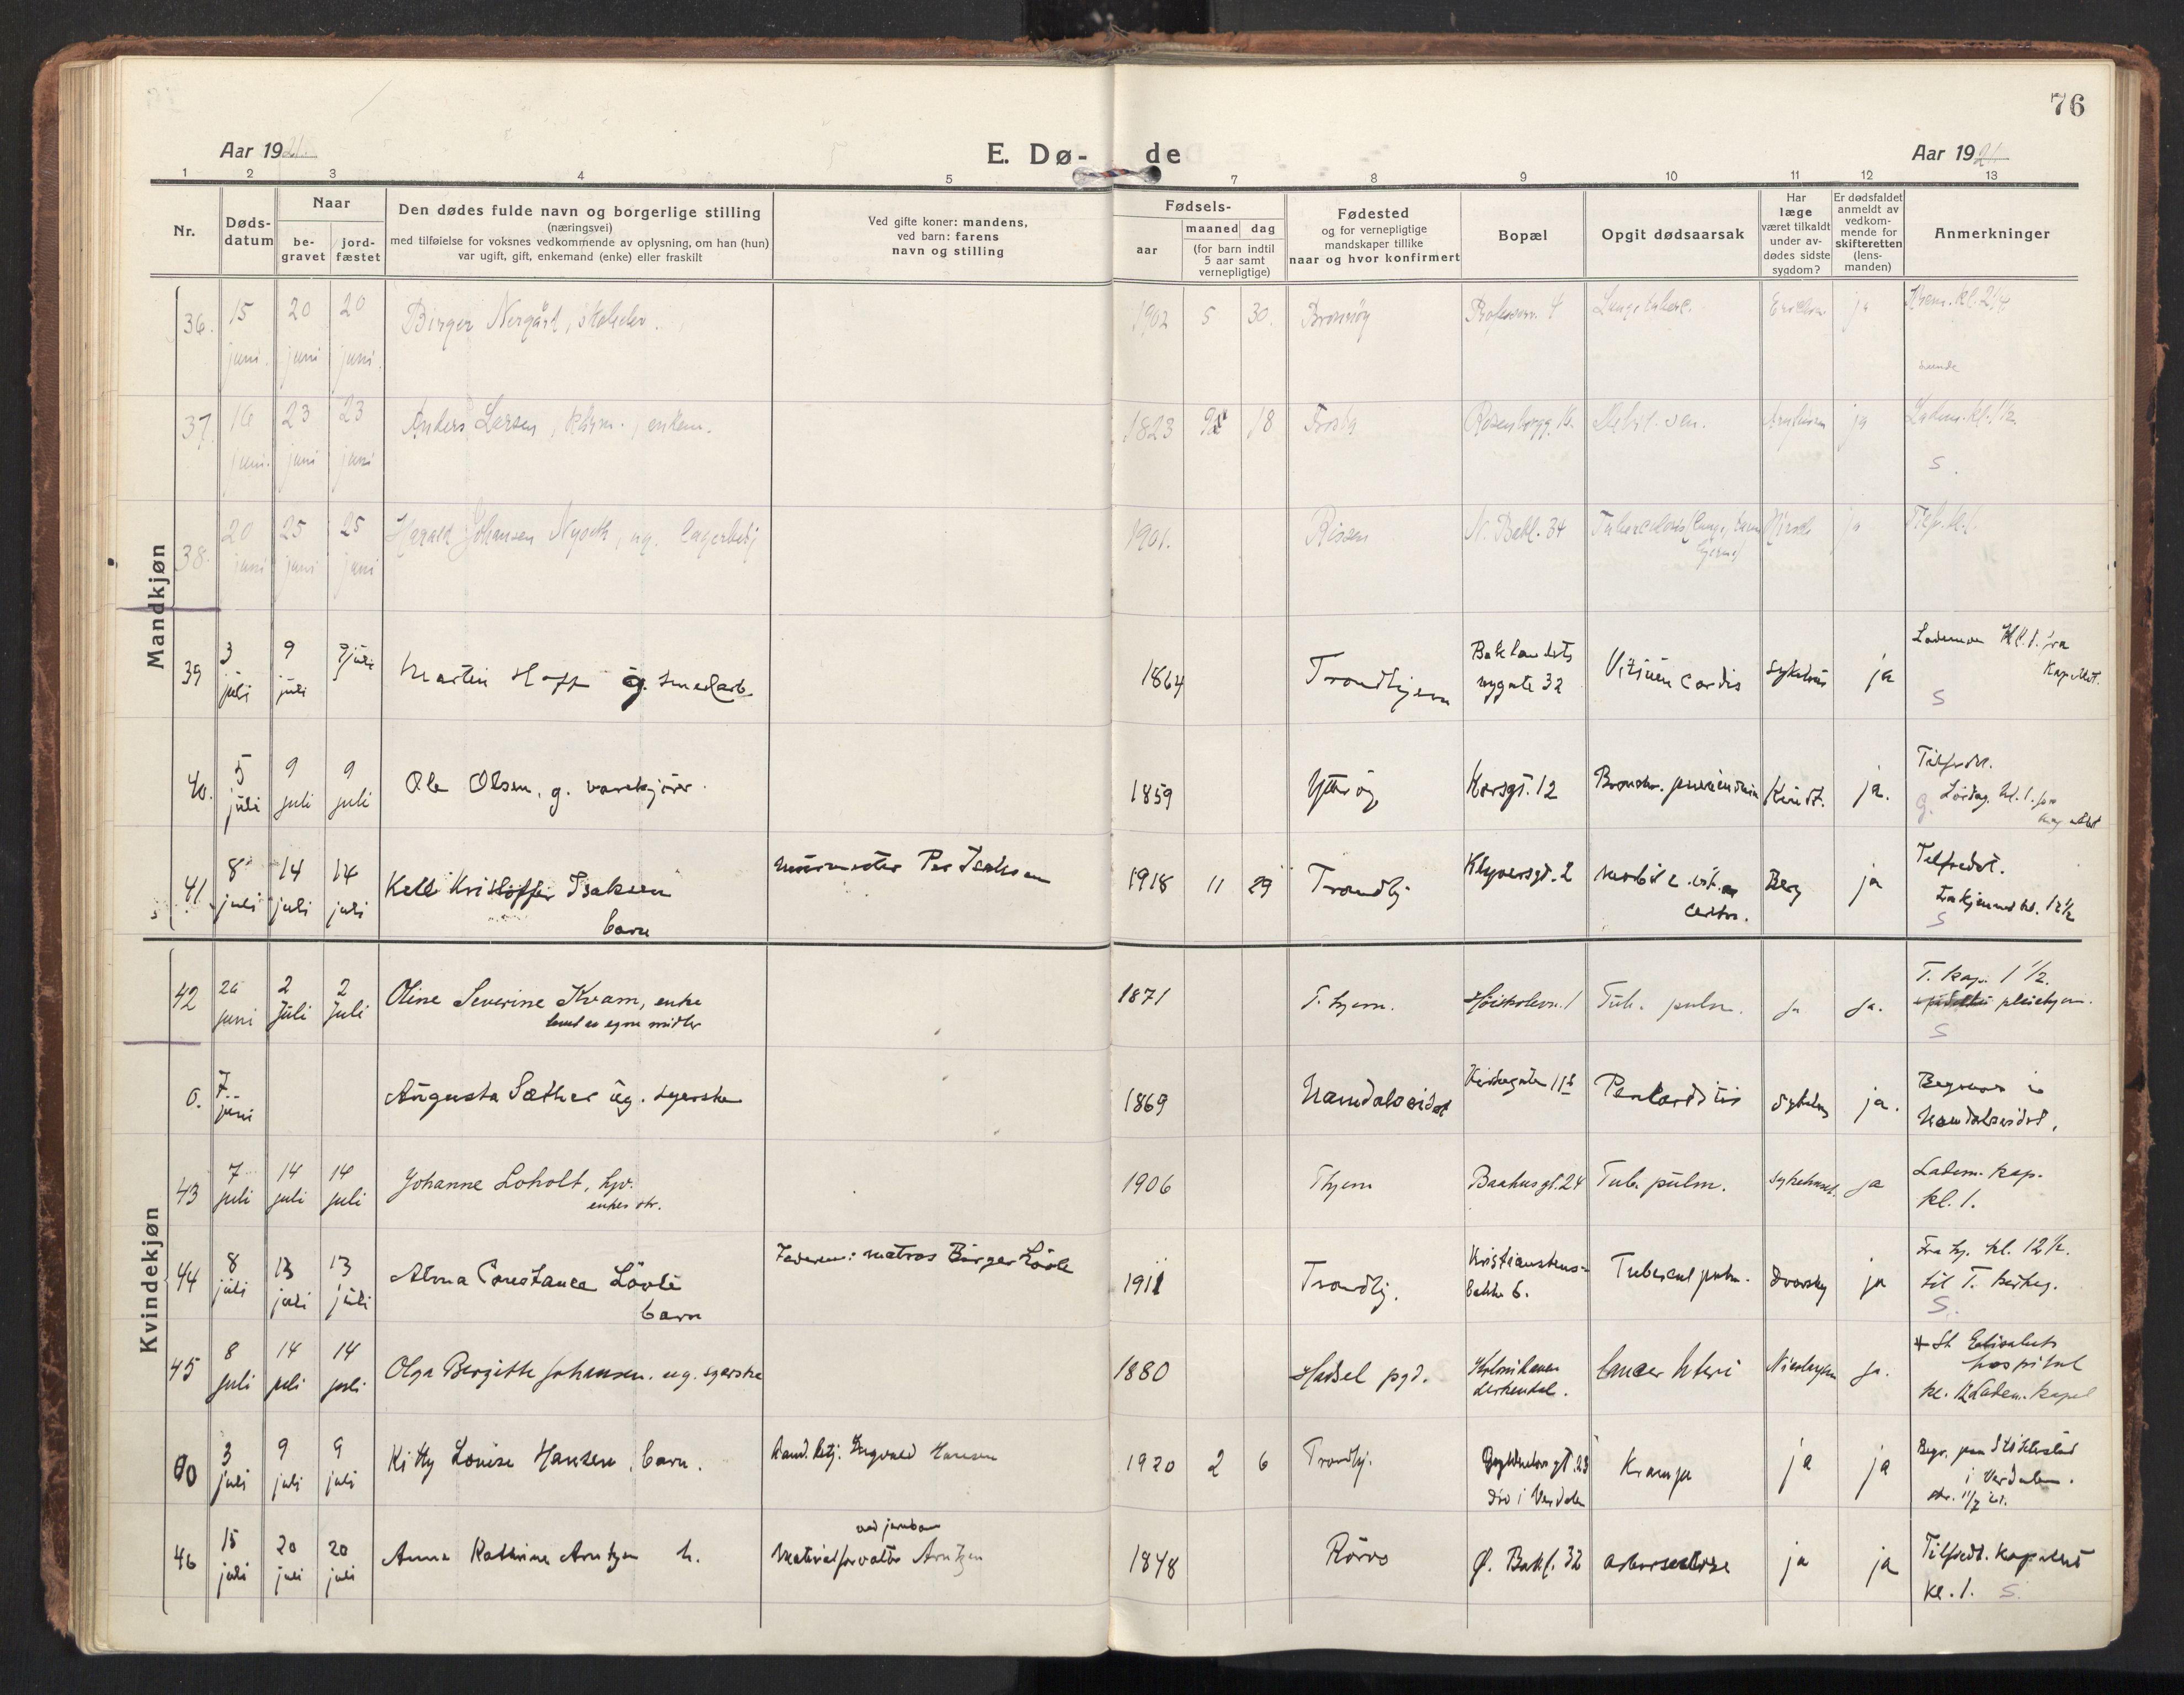 76
Aar 1921.
E. Dø- de
Aar 1921.
1 2 3 4 5 7 8 9 10 11 12 13
Nr.
Døds-
datum
Naar
be-
gravet
jord-
fæstet
Den dødes fulde navn og borgerlige stilling
(næringsvei)
med tilføielse for voksnes vedkommende av oplysning, om han (hun)
var ugift, gift, enkemand (enke) eller fraskilt
Ved gifte koner: mandens,
ved barn: farens
navn og stilling
Fødsels-
aar
maaned dag
(for barn indtil
5 aar samt
vernepligtige)
Fødested
og for vernepligtige
mandskaper tillike
naar og hvor konfirmert
Bopæl
Opgit dødsaarsak
Har
læge
været tilkaldt
under av-
dødes sidste
sygdom?
Er dødsfaldet
anmeldt av
vedkom-
mende for
skifteretten
(lens-
manden)
Anmerkninger
Mandkjøn
36. 15 20 20 Birger Nergård, skoleelev. 1902 5 30. Brønnøy 4 Lungetuberc. ja
juni. juni juni.
37. 16 23 23 Anders Larsen, enkem. 1823 18 Frosta Rosenborgg. ja Ladem. kl. 1½
juni. juni juni S.
38. 20 25 25 Harald Johansen ug. lagerbetj 1901. Rissen N. Bakl. 34 Tuberculosis ja
juni juni juni
39 3 9 9 juli Martin Hoff g. smedarb. 1864 Trondhjem Baklandets Vitium cordis sykehus ja
juli juli nygate 32
Kapellet.
S
40. 5 9 9 Ole Olsen, g. varekjører. 1859 Ytterøy Korsgt. 12 Kindt. ja. Tilfredst.
juli juli juli Lørdag kl. 1. fra
kapellet
41. 8 14 14 Ketil Kristoffer Isaksen murmester Per Isaksen 1918 11 29 Trondhj Klyversgt. 2 Berg ja Tilfredst.
juli juli juli barn kl. 12½
S
Kvindekjøn
42 26 2 2 Oline Severine Kvam, enke 1871 T.hjem. 1 Tub. pulm. ja ja. T. kap. 1 ½.
juni Juli Juli lever av egne midler pleiehjem.
S
0. 7. Augusta Sæther ug. syerske 1869 Namdalseidet sykehus ja. Begraves i
juni Namdalseidet.
43 7 14 14 Johanne Loholt, 1906 Thjem Baahusgt. 24 Tub. pulm. sykehuset. ja Ladem. kap.
juli juli juli enkes dtr. kl. 1.
44 8 13 13 Alma Constance Løvli Faderen: matros Birger Løvli 1911 Trondhj. Kristianstens- Tubercul pulm. ja Fra hj. kl. 12½.
juli juli juli barn bakke 6. til T. kirkeg.
S.
45 8 14 14 Olga Bergitte Johansen. ug. syerske 1880 Hadsel pgd. Kolonihaven Cancer Uteri ja. St. Elisabets
juli juli juli Lerkendal. hospital
kl. 12 Ladem. kapel
0 3 9 9 Kitty Louise Hansen, barn. Ingvald Hansen 1920 2 6 Trondhj. Krampe ja ja Begr. paa Stiklestad
juli juli juli død i Verdalen i Verdalen.
46 15 20 20 Anna Kathrine Arntzen h. Materialforvalter Arntzen 1848 Røros Ø. Bakl. 32 ja ja Tilfredst. kapellet
juli juli juli ved jernban kl. 1. S.